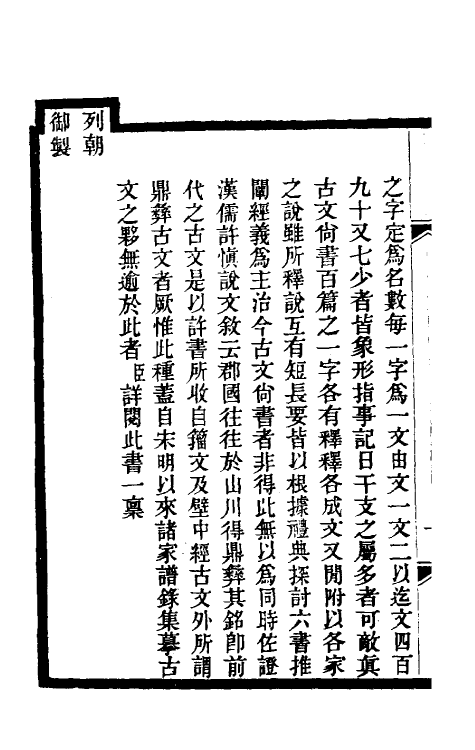 之字定爲名數每一字爲一文由文一文二以迄文四百
九十又七少者皆象形指事記日干支之屬多者可敵眞
古文尙書百篇之一字各有釋釋各成文又閒附以各家
之說雖所釋說互有短長要皆以根據禮典探討六書推
闡經義爲主治今古文尙書者非得此無以爲同時佐證
漢儒許愼說文敘云郡國往往於山川得鼎彝其銘卽前
代之古文是以許書所收自籒文及壁中經古文外所謂
鼎彝古文者厥惟此種蓋自宋明以來諸家譜錄集摹古
文之夥無逾於此者臣詳閱此書一稟
列朝
御製